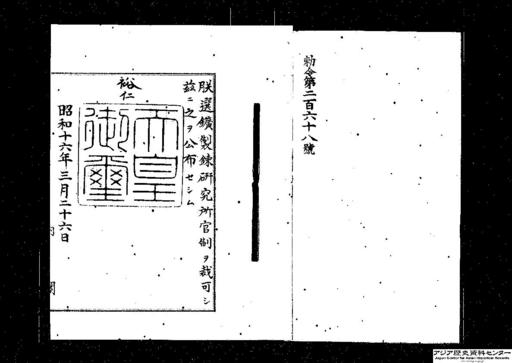 勅令第二百六十八號
朕選鑛製錬研究所官制ヲ裁可シ
茲ニ之ヲ公布セシム
裕仁
天皇御璽
昭和十六年三月二十六日
内閣
アジア歴史資料センター
Japan Center for Asian Historical Records